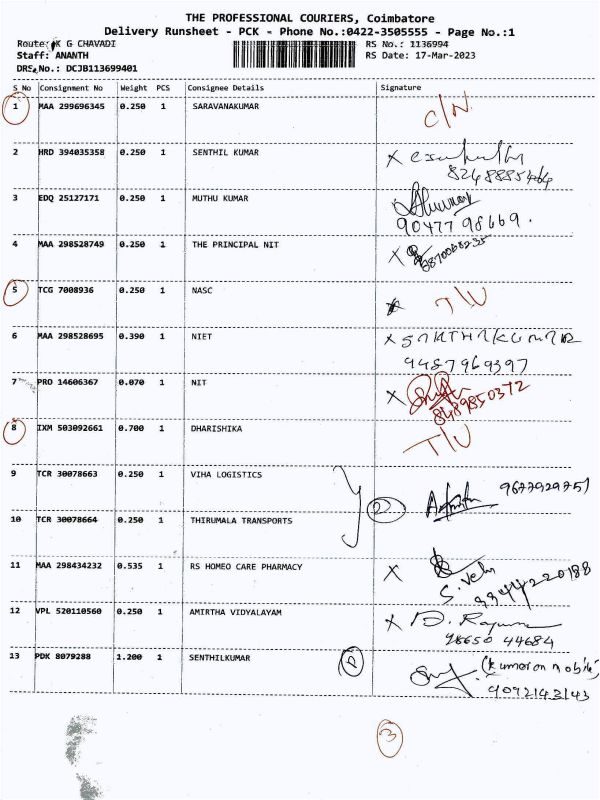 THE PROFESSIONAL COURIERS, Coimbatore
Delivery Runsheet - PCK - Phone No.:0422-3505555 - Page No.:1
Route: K G CHAVADI RS No.: 1136994
Staff: ANANTH RS Date: 17-Mar-2023
DRS No.: DCJB113699401
S No Consignment No Weight PCS Consignee Details Signature
1 MAA 299696345 0.250 1 SARAVANAKUMAR C/N
2 HRD 394035358 0.250 1 SENTHIL KUMAR X
3 EDQ 25127171 0.250 1 MUTHU KUMAR
90477 98669.
4 MAA 298528749 0.250 1 THE PRINCIPAL NIT X
5 TCG 7008936 0.250 1 NASC T/U
6 MAA 298528695 0.390 1 NIET X
9487969397
7 PRO 14606367 0.070 1 NIT X
8489850372
8 IXM 503092661 0.700 1 DHARISHIKA T/U
9 TCR 30078663 0.250 1 VIHA LOGISTICS
10 TCR 30078664 0.250 1 THIRUMALA TRANSPORTS
11 MAA 298434232 0.535 1 RS HOMEO CARE PHARMACY X
S. Velu
12 VPL 520110560 0.250 1 AMIRTHA VIDYALAYAM X
44684
13 PDK 8079288 1.200 1 SENTHILKUMAR
9092143143
3